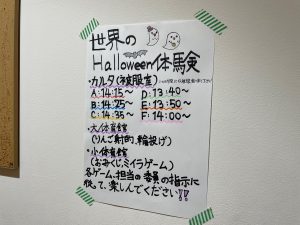 世界の
Halloween体験
・カルタ(被服室)
A:14:15〜 D:13:40〜
B:14:25〜 E:13:50〜
C:14:35 F:14:00〜
・大体育館
(りんご射的、輪投げ)
・小体育館
(おみくじ、ミイラゲーム)
各ゲーム、担当の委員の指示に
従って、楽しんでください!!